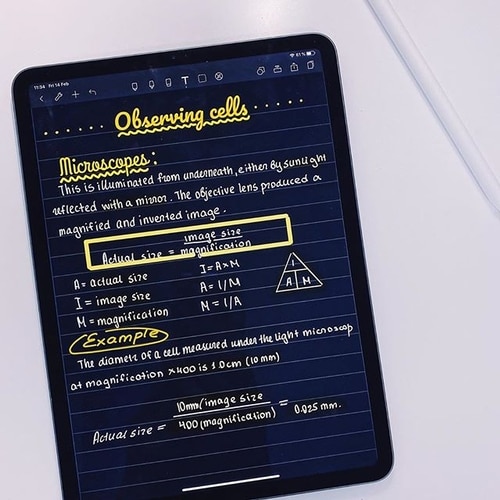 11:34 Fri 14 Feb
61%
Observing cells
Microscopes:
This is illuminated from underneath, either by sunlight
reflected with a mirror. The objective lens produced a
magnified and inverted image.
Actual size = image size / magnification
A = actual size
I = image size
M = magnification
I = A×M
A = I/M
M = I/A
I
A M
Example
The diametr of a cell measured under the light microscop
at magnification ×400 is 1.0cm (10mm)
Actual size = 10mm (image size / 400 (magnification) = 0.025 mm.